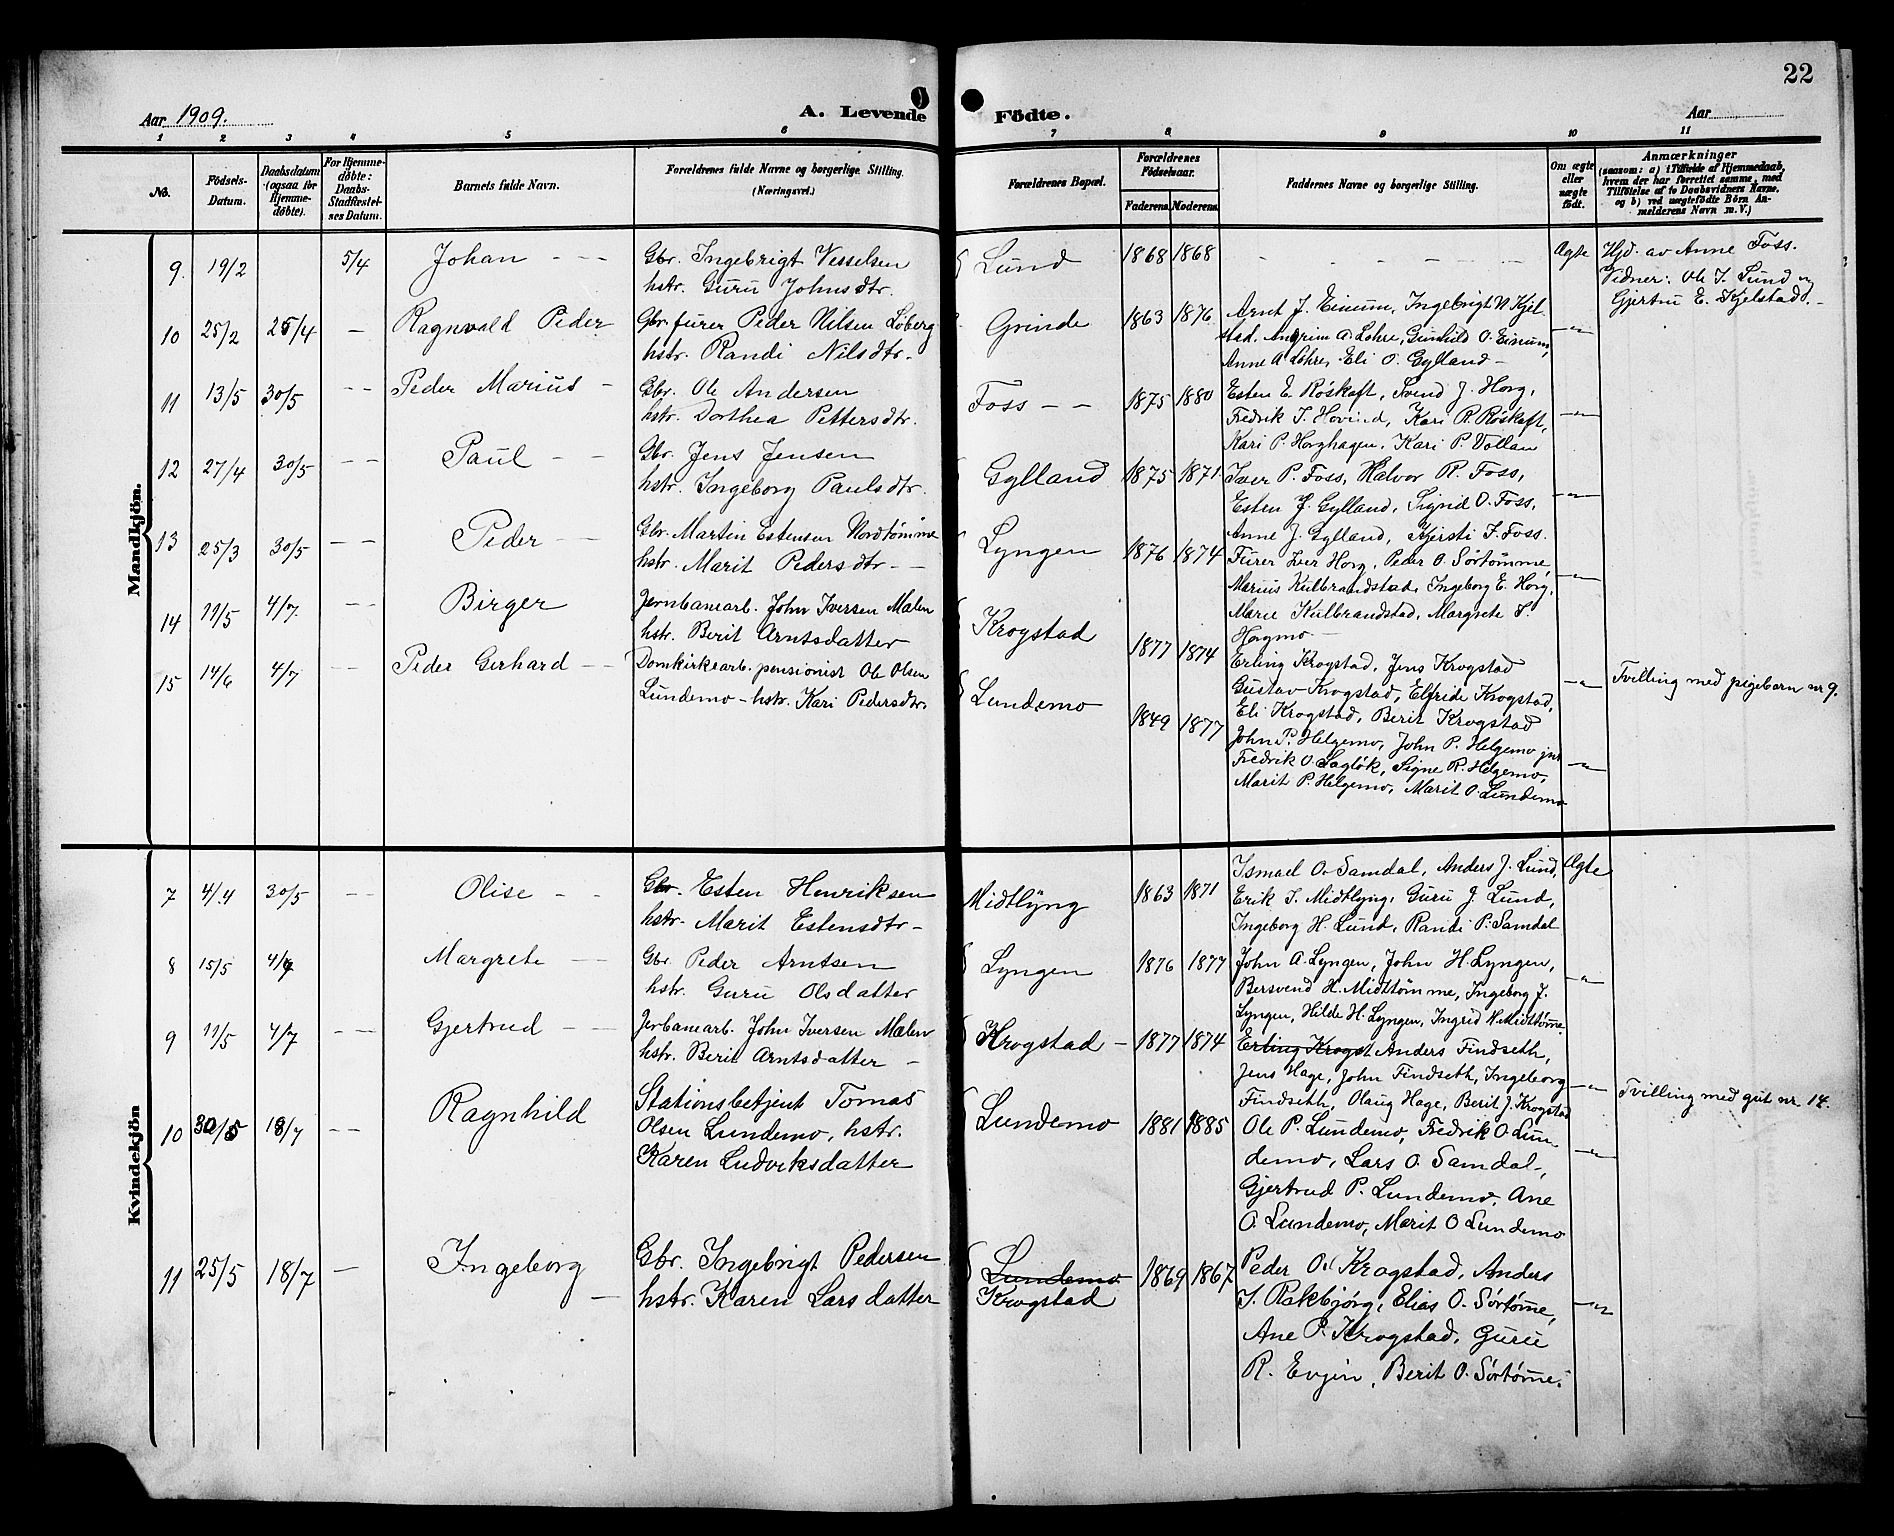 22
Aar 1909.
A. Levende Födte.
Aar
1 2 3 4 5 6 7 8 9 10 11
No. Födsels-Datum. Daabsdatum (ogsaa for Hjemmedøbte). For Hjemmedøbte: Daabs-Stadfæstelses Datum. Barnets fulde Navn. Forældrenes fulde Navne og borgerlige Stilling. (Næringsvei.) Forældrenes Bopæl. Forældrenes Födselsaar. Faderens. Moderens. Faddernes Navne og borgerlige Stilling. Om ægte eller uægte födt. Anmærkninger (saasom: a) i Tilfælde af Hjemmedaab, hvem der har forrettet samme, med Tilföielse af to Daabsvidners Navne, og b) ved uægtefödte Börn Anmelderens Navn m. V.)
Mandkjön.
9. 19/2 5/4 Johan - - - Gbr. Ingebrigt Vesselsen Lund 1868 1868 - - - - - Ægte Hjd. av Anne Foss.
hstr. Guru Johnsdtr. Vidner: Ole I. Lund og
Gjertru E. Kjelstad. -
10 25/2 25/4 - Ragnvald Peder Gbr. furer Peder Nilsen Løberg Grinde 1863 1876 Arnt J. Einum, Ingebrigt N. Kjel-
hstr. Randi Nilsdtr. stad. Angrim A. Løhre, Gunhild O. Einum, -"-
Anne A Løhre, Eli O. Gylland -
11 13/5 30/5 - - Peder Marius - Gbr. Ole Andersen Foss - - 1875 1880 Esten E. Röskaft, Svend J. Horg,
hstr. Dorthea Pettersdtr. Fredrik I. Hovind, Kari R. Röskaft, -"-
Kari P. Horghagen, Kari P. Vollan
12 27/4 30/5 - - Paul - - Gbr. Jens Jensen Gylland 1875 1871. Iver P. Foss, Halvor R. Foss,
hstr. Ingeborg Paulsdtr. Esten J. Gylland, Sigrid O. Foss, -"-
Anne J. Gylland, Kjersti I. Foss.
13 25/3 30/5 - - Peder - - Gbr. Martin Estensen Nordtømme Lyngen 1876 1874 Furer Iver Horg, Peder O. Sörtömme,
hstr. Marit Pedersdtr - - Marius Kulbrandstad, Ingeborg E. Horg, -"-
Marie Kulbrandstad, Margrete I.
Horgmo -
14 11/5 4/7. - - Birger Jernbanearb. John Iversen Mælen Krogstad 1877 1874 Erling Krogstad, Jens Krogstad
hstr. Berit Arntsdatter Gustav Krogstad, Elfride Krogstad, -"- Tvilling med pigebarn nr 9.
Eli Krogstad, Berit Krogstad
15 14/6 4/7 - - Peder Gerhard - - Domkirkearb. pensionist Ole Olsen Lundemo 1849 1877 John P. Helgemo, John P. Helgemo jnr
Lundemo - hstr. Kari Pedersdtr. Fredrik O. Sagløk, Signe R. Helgemo, -"-
Marit P. Helgemo, Marit O. Lundemo
Kvindekjön
7 4/4 30/5 - - Olise - - Gbr. Esten Henriksen Midtlyng 1863 1871 Ismael O. Samdal, Anders J. Lund, Ægte
hstr. Marit Estensdtr - Erik I. Midtlyng, Guru J. Lund,
Ingeborg H. Lund, Randi P. Samdal
8 15/5 4/7 Margrete - - Gbr. Peder Arntsen Lyngen 1876 1877 John A. Lyngen, John H. Lyngen,
hstr. Guru Olsdatter Bersvend H. Midttömme, Ingeborg J. -"-
Lyngen, Hilde H. Lyngen, Ingrid N. Midttömme
9 11/5 4/7 - - Gjertrud - - Jerbanearb. John Iversen Mælen Krogstad - 1877 1874 Erling Krogst Anders Findseth,
hstr. Berit Arntsdatter - Jens Hage, John Findseth, Ingeborg -"- Tvilling med gut nr. 14.
Findseth, Olaug Hage, Berit J. Krogstad
10 30/5 18/7 - - Ragnhild Stationsbetjent Tomas Lundemo 1881 1885 Ole P. Lundemo, Fredrik O. Lun-
Olsen Lundemo, hstr. demo, Lars O. Samdal, -"-
Karen Ludviksdatter Gjertrud P. Lundemo, Ane
O. Lundemo, Marit O Lundemo
11 25/5 18/7 - Ingeborg - Gbr. Ingebrigt Pedersen Lundemo 1869 1867 Peder O. Krogstad, Anders
hstr. Karen Larsdatter Krogstad I. Rakbjörg, Elias O. Sörtömme, -"-
Ane P. Krogstad, Guru
R. Evjen, Berit O. Sörtömme.